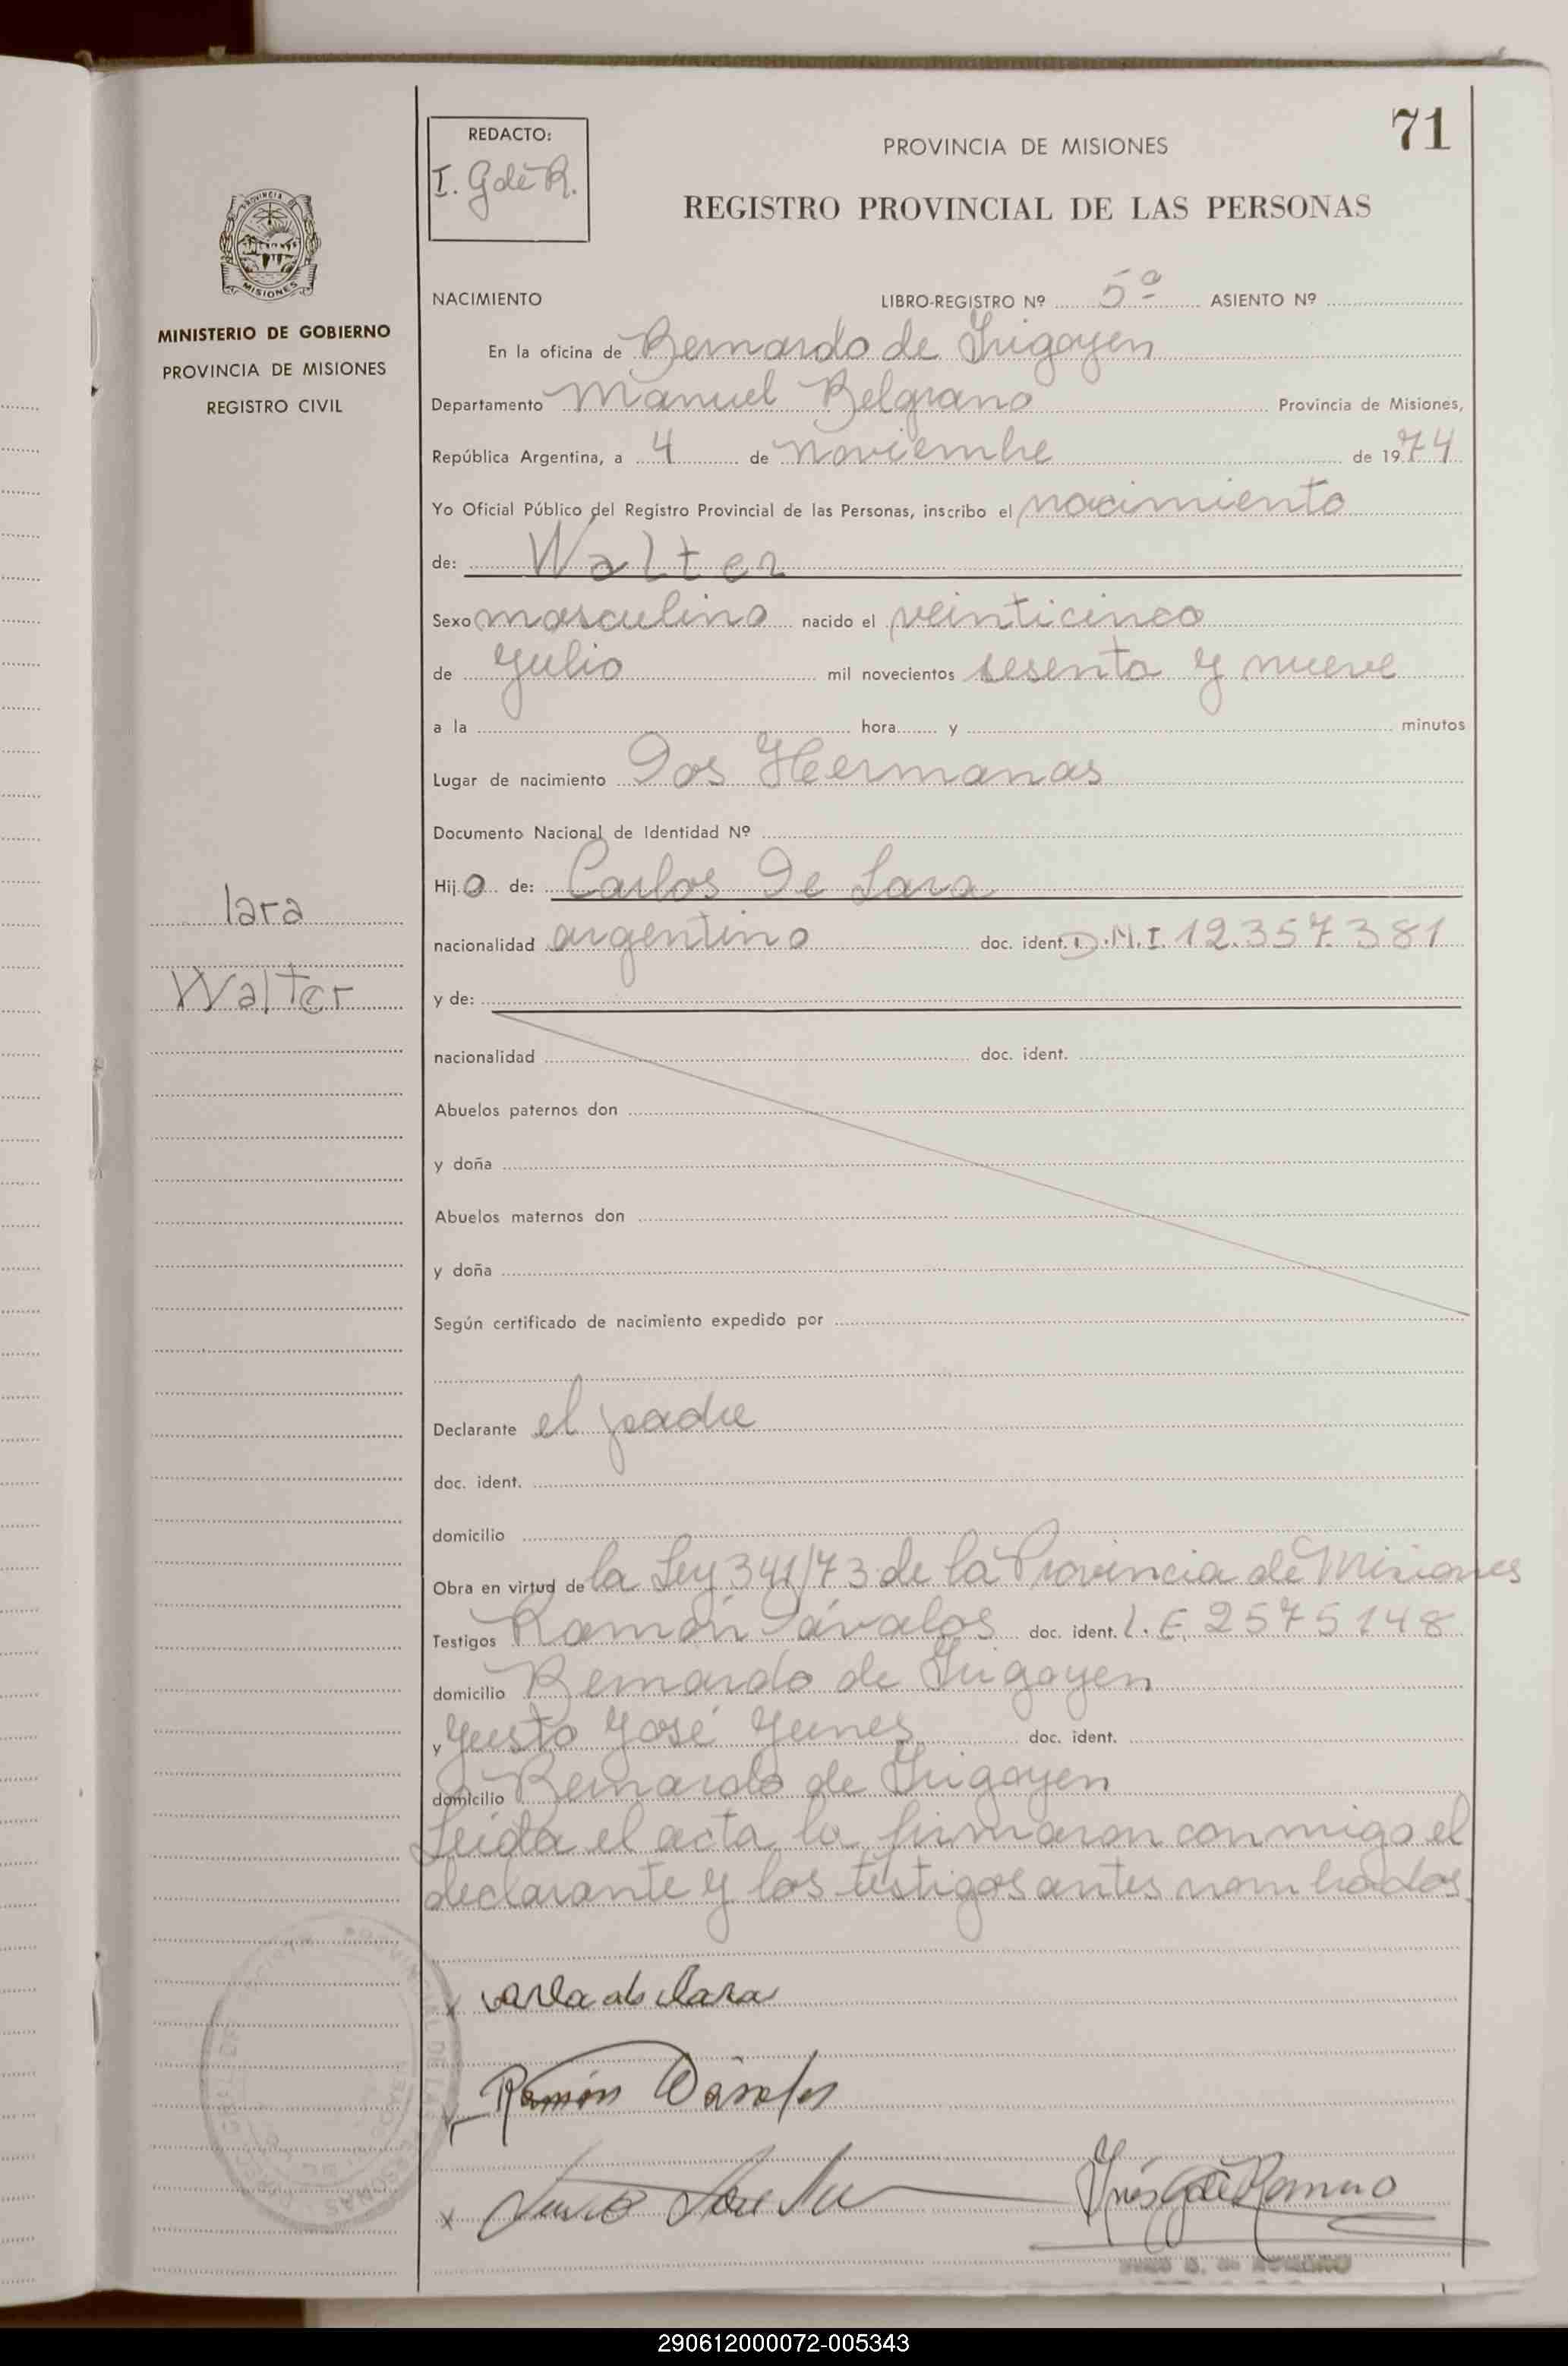 71
REDACTO:
I. G de R.
PROVINCIA DE MISIONES
REGISTRO PROVINCIAL DE LAS PERSONAS
MISIONES
MINISTERIO DE GOBIERNO
PROVINCIA DE MISIONES
REGISTRO CIVIL
NACIMIENTO LIBRO-REGISTRO Nº 5º ASIENTO Nº
En la oficina de Bernardo de Irigoyen
Departamento Manuel Belgrano Provincia de Misiones,
República Argentina, a 4 de noviembre de 1974
Yo Oficial Público del Registro Provincial de las Personas, inscribo el nacimiento
de: Walter
Sexo masculino nacido el veinticinco
de Julio mil novecientos sesenta y nueve
a la hora y minutos
Lugar de nacimiento Dos Hermanas
Documento Nacional de Identidad Nº
Hijo de: Carlos De Lara
lara
nacionalidad argentino doc. ident. D.N.I. 12.357.381
Walter
y de:
nacionalidad doc. ident.
Abuelos paternos don
y doña
Abuelos maternos don
y doña
Según certificado de nacimiento expedido por
Declarante el padre
doc. ident.
domicilio
Obra en virtud de la Ley 341/73 de la Provincia de Misiones
Testigos Ramón Dávalos doc. ident. L.E. 2575148
domicilio Bernardo de Irigoyen
y Justo José Yunes doc. ident.
domicilio Bernardo de Irigoyen
Leida el acta la firmaron conmigo el
declarante y los testigos antes nombrados.
x
Ramón Dávalos
x Justo José
Inés G de Romero
290612000072-005343